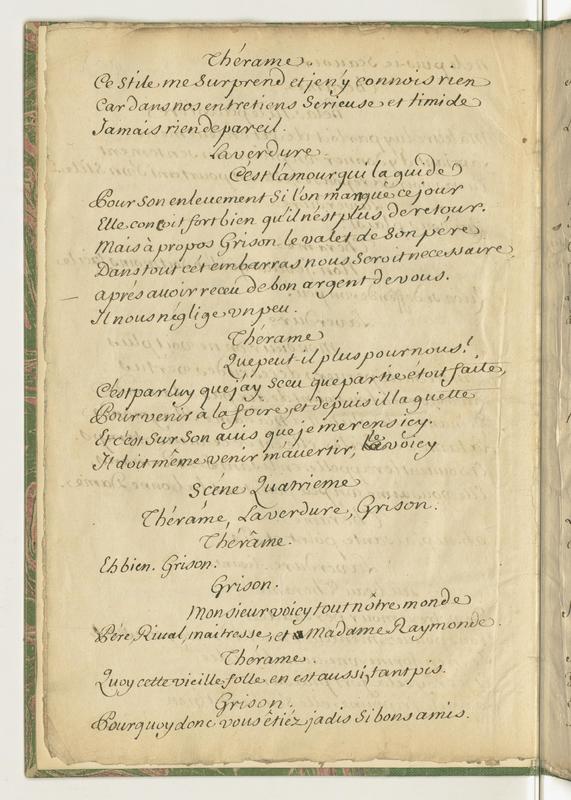 Thérame.
Ce stile me surprend et je n'y connois rien
Car dans nos entretiens Serieuse et timide
Jamais rien de pareil.
Laverdure.
C'est l'amour qui la guide
Pour son enlevement Si l'on manque ce jour
Elle conçoit fort bien qu'il n'est plus de retour.
Mais à propos Grison le valet de Son pére
Dans tout cét embarras nous Seroit necessaire,
aprés auoir receu de bon argent de vous.
Il nous néglige vn peu.
Thérame
Que peut-il plus pour nous!
C'est par luy que j'ay sceu que partie etoit faite,
Pour venir à la foire, et depuis il la guette
Et c'est Sur Son auis que je me rens icy.
Il doit même venir m'auertir, Le voicy
Scene Quatrieme
Thérame, Laverdure, Grison.
Thérame.
Eh bien. Grison.
Grison.
Monsieur voicy tout nôtre monde
Pére, Riual, maitresse, et Madame Raymonde.
Thérame.
Quoy cette vieille folle en est aussi, tant pis.
Grison.
Pourquoy donc vous êtiéz jadis Si bons amis.